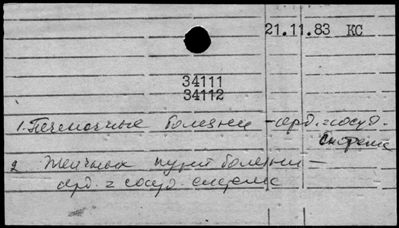 21.11.83 КС
34111
34112
1. Печеночные болезни - серд.=сосуд.
система
2 Желчных пузыр болезни -
серд.=сосуд. система